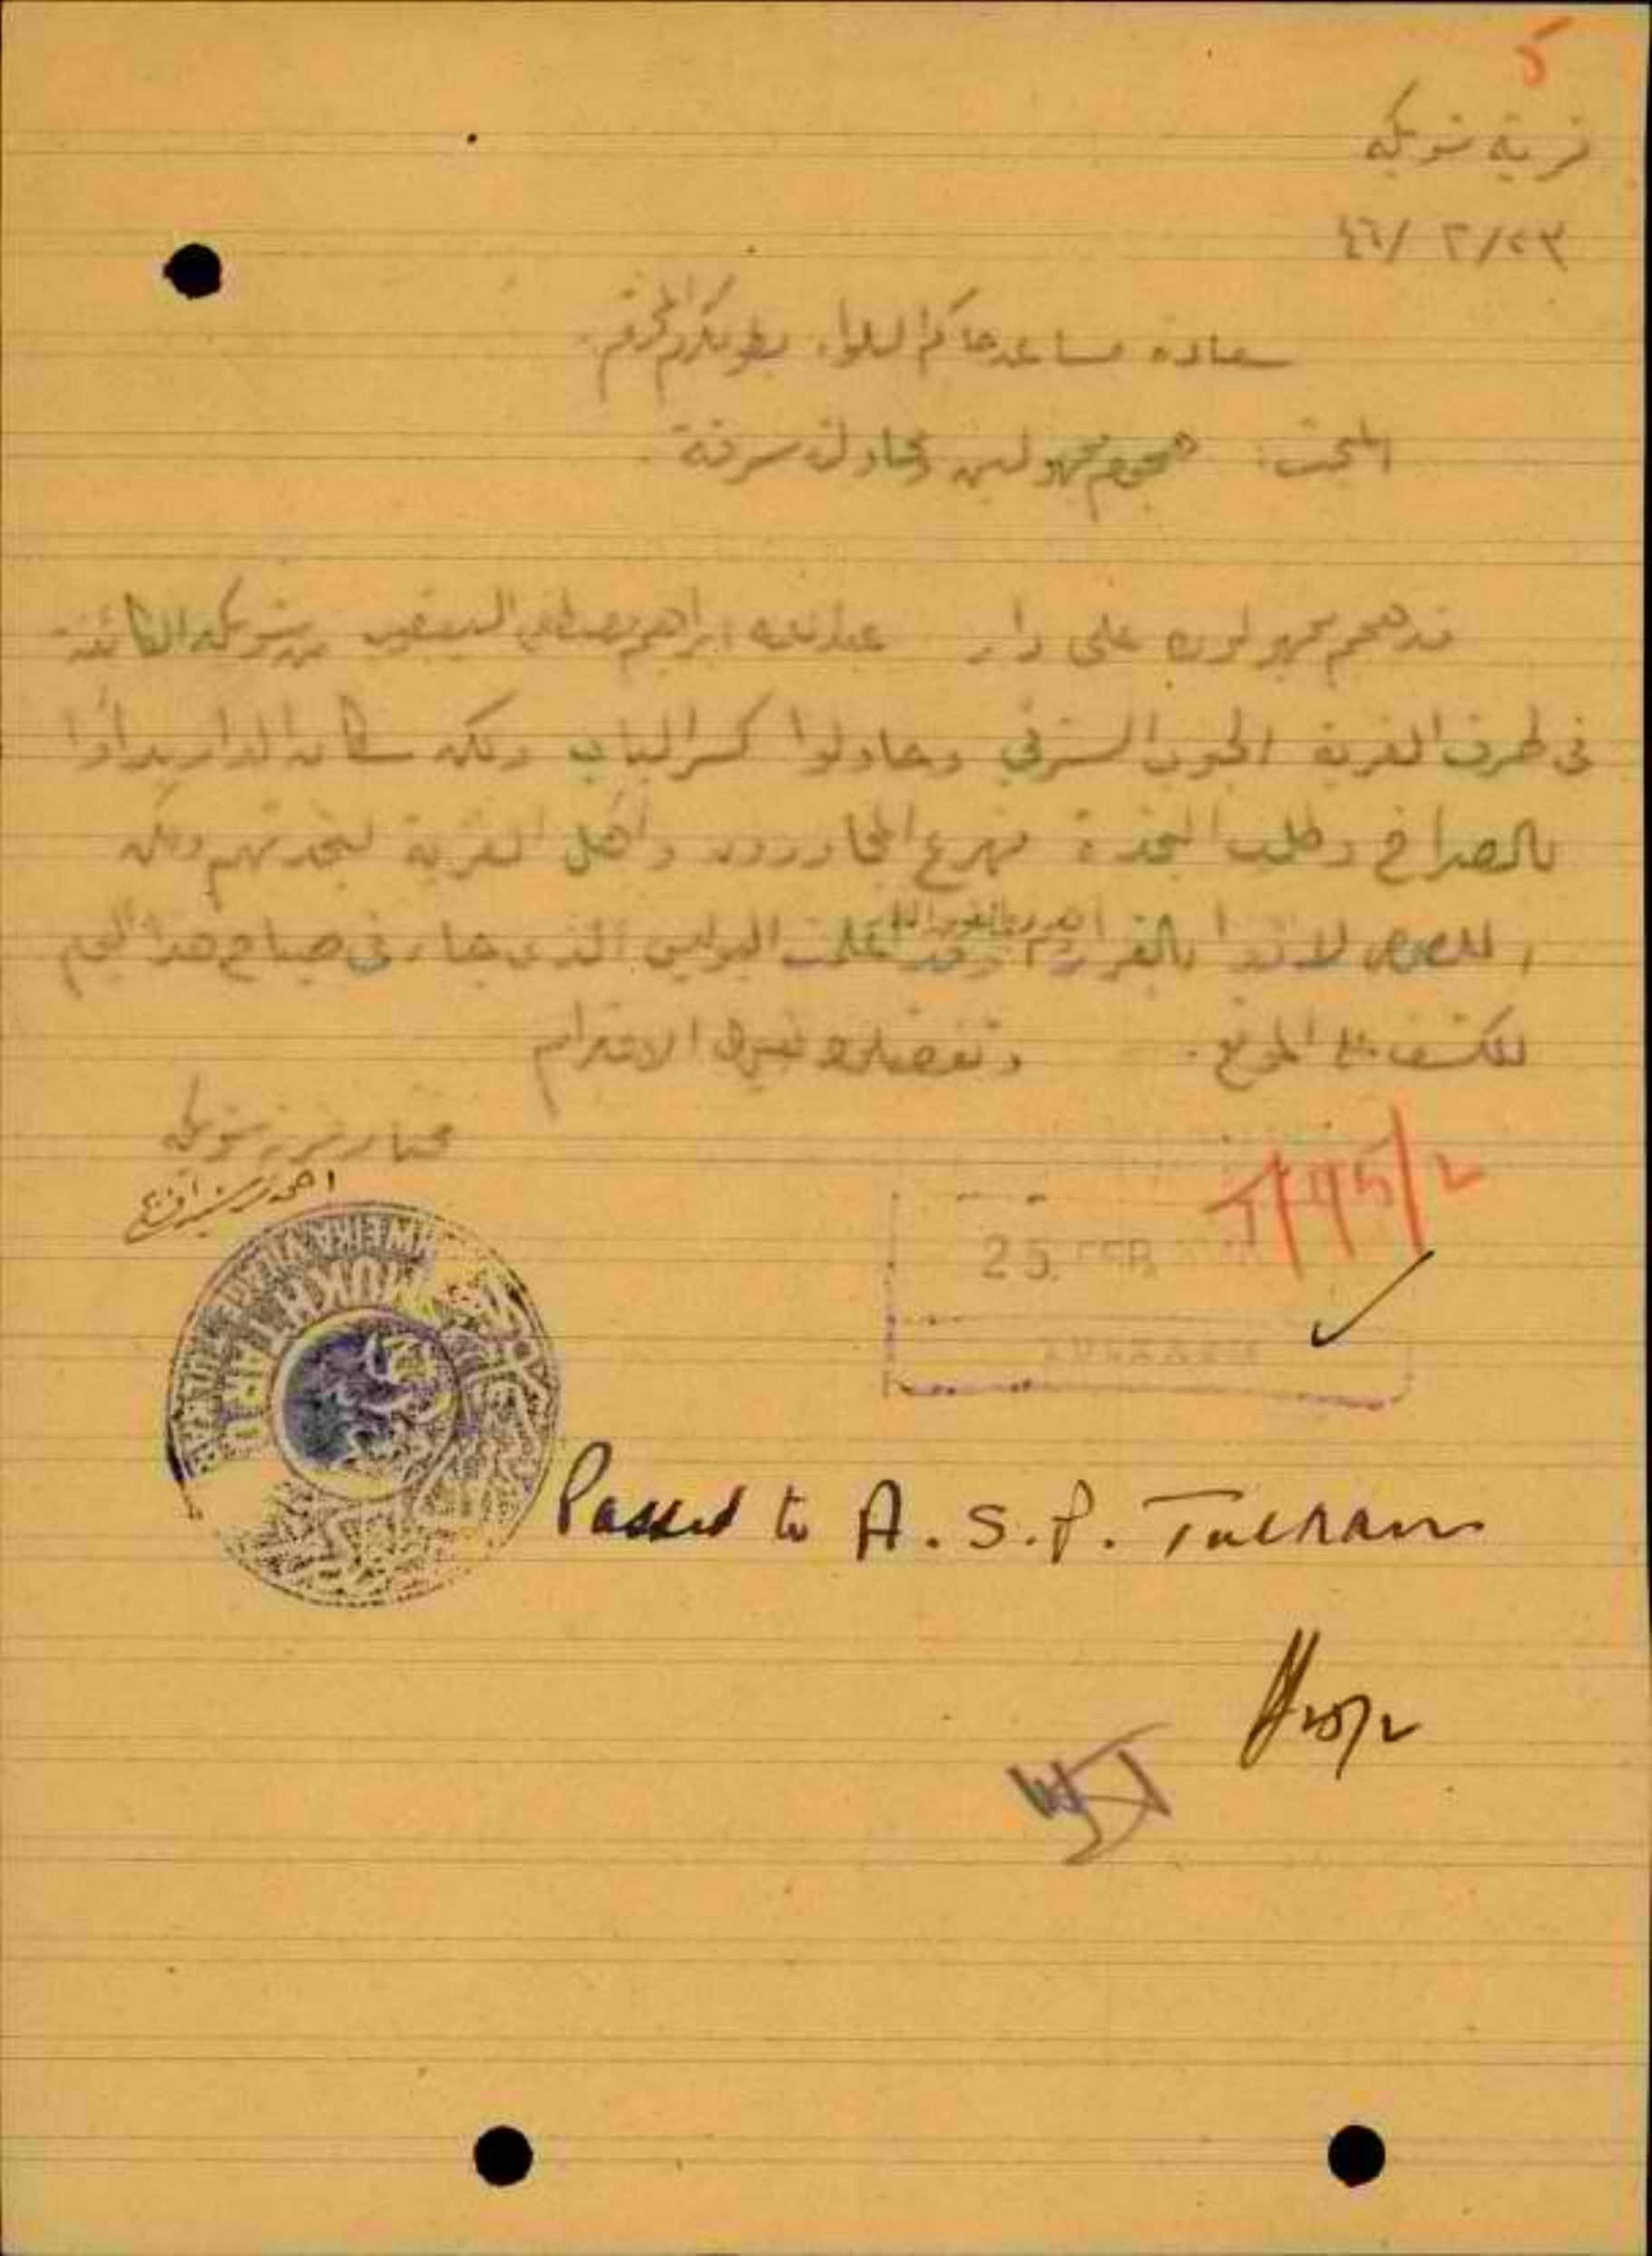 قرية شويكه
٢٣/٢/٤٦
سعادة مساعد حاكم اللواء بطولكرم المحترم
المبحث: هجوم مجهولين ومحاولة سرقة
قد هجم مجهولون على دار ابراهيم مصطفى اليعقوب من شويكه الكائنة
في طرف القرية الجنوب الشرقي وحاولوا كسر الباب ولكن سكان الدار بدأوا
بالصراخ وطلب النجدة فهرع المجاورون وأهل القرية لنجدتهم ولكن
اللصوص لاذوا بالفرار وقد اعلمت البوليس الذي جاء في صباح هذا اليوم
للكشف على الموقع. وتفضلوا بقبول الاحترام
مختار قرية شويكه
احمد
SHWEIKA VILLAGE TULKARM
MUKHTAR
25 FEB
TULKARM
Passed to A.S.P. Tulkarm
25/2